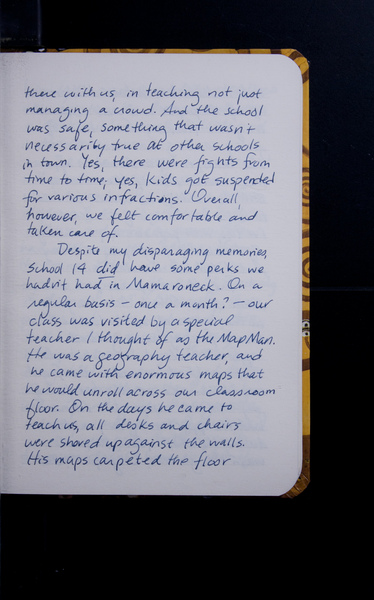 there with us, in teaching not just
managing a crowd. And the school
was safe, something that wasn't
necessarily true at other schools
in town. Yes, there were fights from
time to time; yes, kids got suspended
for various infractions. Overall,
however, we felt comfortable and
taken care of.
Despite my disparaging memories,
School 14 did have some perks we
hadn't had in Mamaroneck. On a
regular basis – once a month? – our
class was visited by a special
teacher I thought of as the Map Man.
He was a geography teacher, and
he came with enormous maps that
he would unroll across our classroom
floor. On the days he came to
teach us, all desks and chairs
were shoved up against the walls.
His maps carpeted the floor